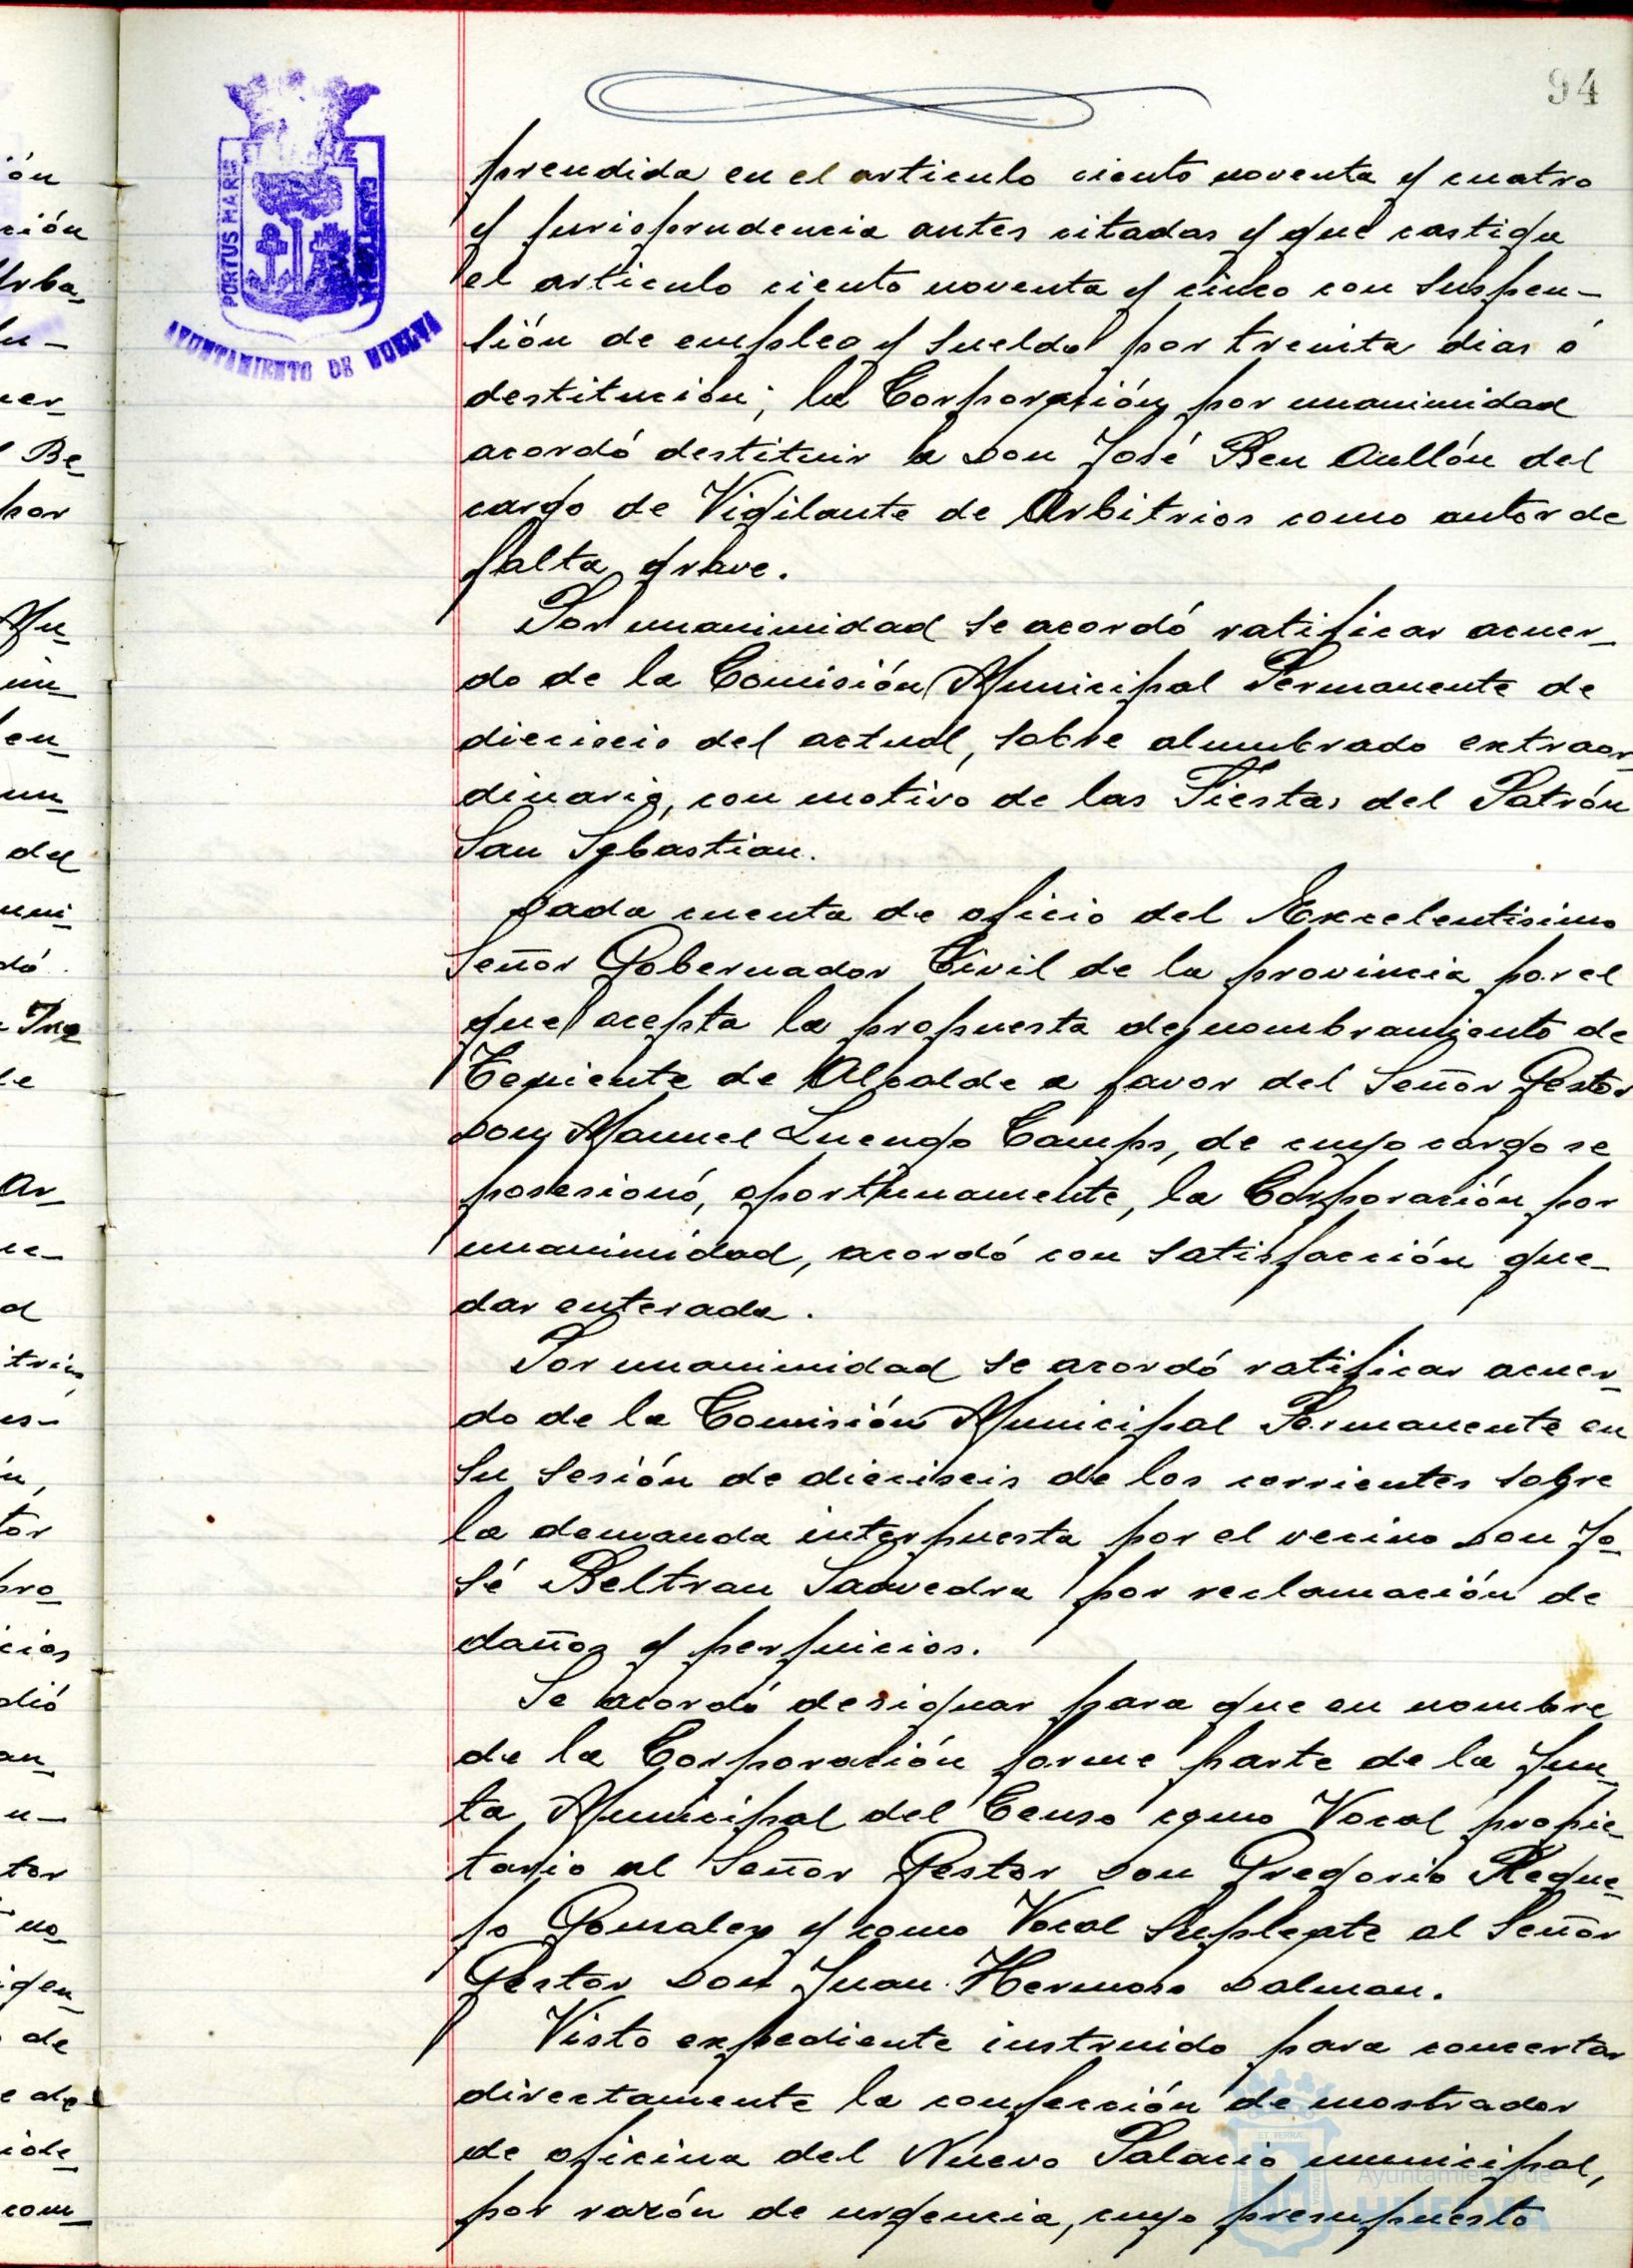 94
PORTUS MARIS
ET TERRAE
CUSTODIA
AYUNTAMIENTO DE HUELVA
prendida en el articulo ciento noventa y cuatro
y jurisprudencia antes citadas y que castiga
el articulo ciento noventa y cinco con suspen-
sión de empleo y sueldo por treinta dias ó
destitución; la Corporación por unanimidad
acordó destituir a Don José Ben Aullón del
cargo de Vigilante de Arbitrios como autor de
falta grave.
Por unanimidad se acordó ratificar acuer-
do de la Comisión Municipal Permanente de
dieciseis del actual, sobre alumbrado extraor-
dinario, con motivo de las Fiestas del Patrón
San Sebastian.
Dada cuenta de oficio del Excelentisimo
Señor Gobernador Civil de la provincia por el
que acepta la propuesta de nombramiento de
Teniente de Alcalde a favor del Señor Gestor
Don Manuel Luengo Camps, de cuyo cargo se
posesionó, oportunamente, la Corporación por
unanimidad, acordó con satisfacción que-
dar enterada.
Por unanimidad se acordó ratificar acuer-
do de la Comisión Municipal Permanente en
su sesión de dieciseis de los corrientes sobre
la demanda interpuesta por el vecino Don Jo-
sé Beltran Saavedra por reclamación de
daños y perjuicios.
Se acordó designar para que en nombre
de la Corporación forme parte de la Jun-
ta Municipal del Censo como Vocal propie-
tario al Señor Gestor Don Gregorio Reque-
jo Gonzalez y como Vocal Suplente al Señor
Gestor Don Juan Hermoso Dalman.
Visto expediente instruido para concertar
directamente la confección de mostrador
de oficina del Nuevo Palacio municipal,
por razón de urgencia, cuyo presupuesto
Ayuntamiento de
HUELVA